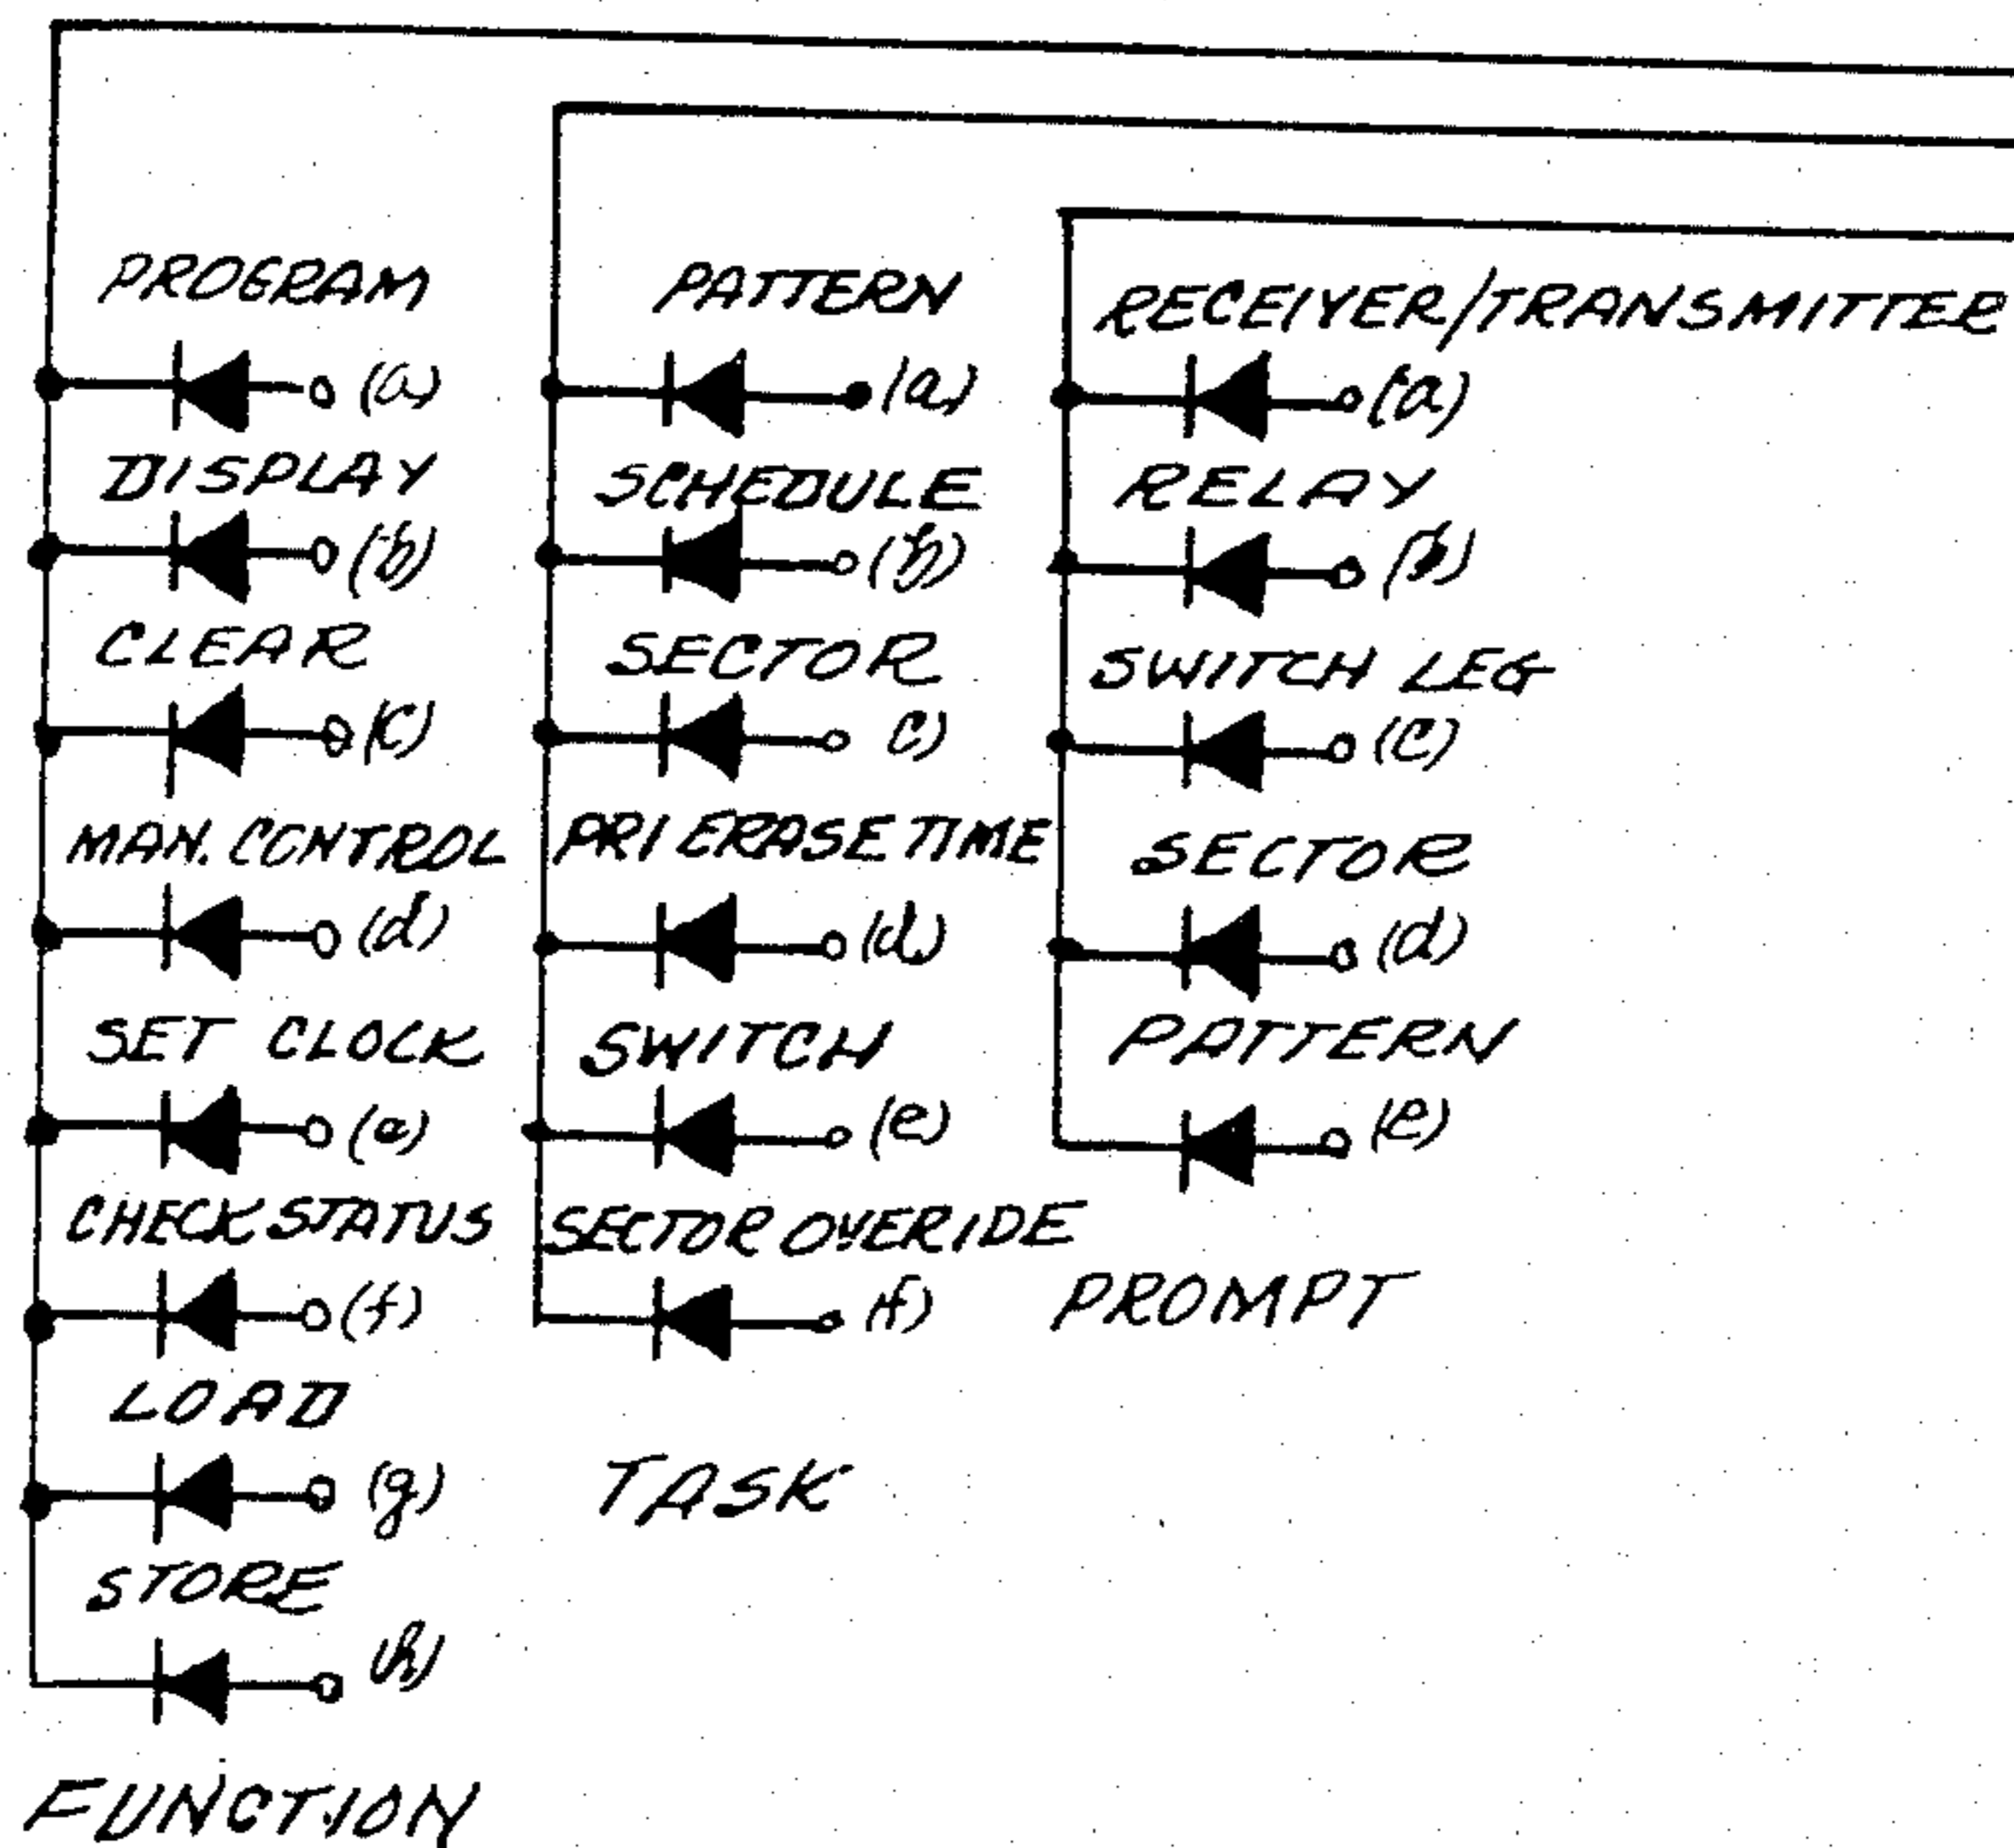 PROGRAM
(a)
DISPLAY
(b)
CLEAR
(c)
MAN. CONTROL
(d)
SET CLOCK
(e)
CHECK STATUS
(f)
LOAD
(g)
STORE
(h)
FUNCTION
PATTERN
(a)
SCHEDULE
(b)
SECTOR
c)
PRI ERASE TIME
(d)
SWITCH
(e)
SECTOR OVERIDE
(f)
TASK
RECEIVER/TRANSMITTER
(a)
RELAY
(b)
SWITCH LEG
(c)
SECTOR
(d)
PATTERN
(e)
PROMPT